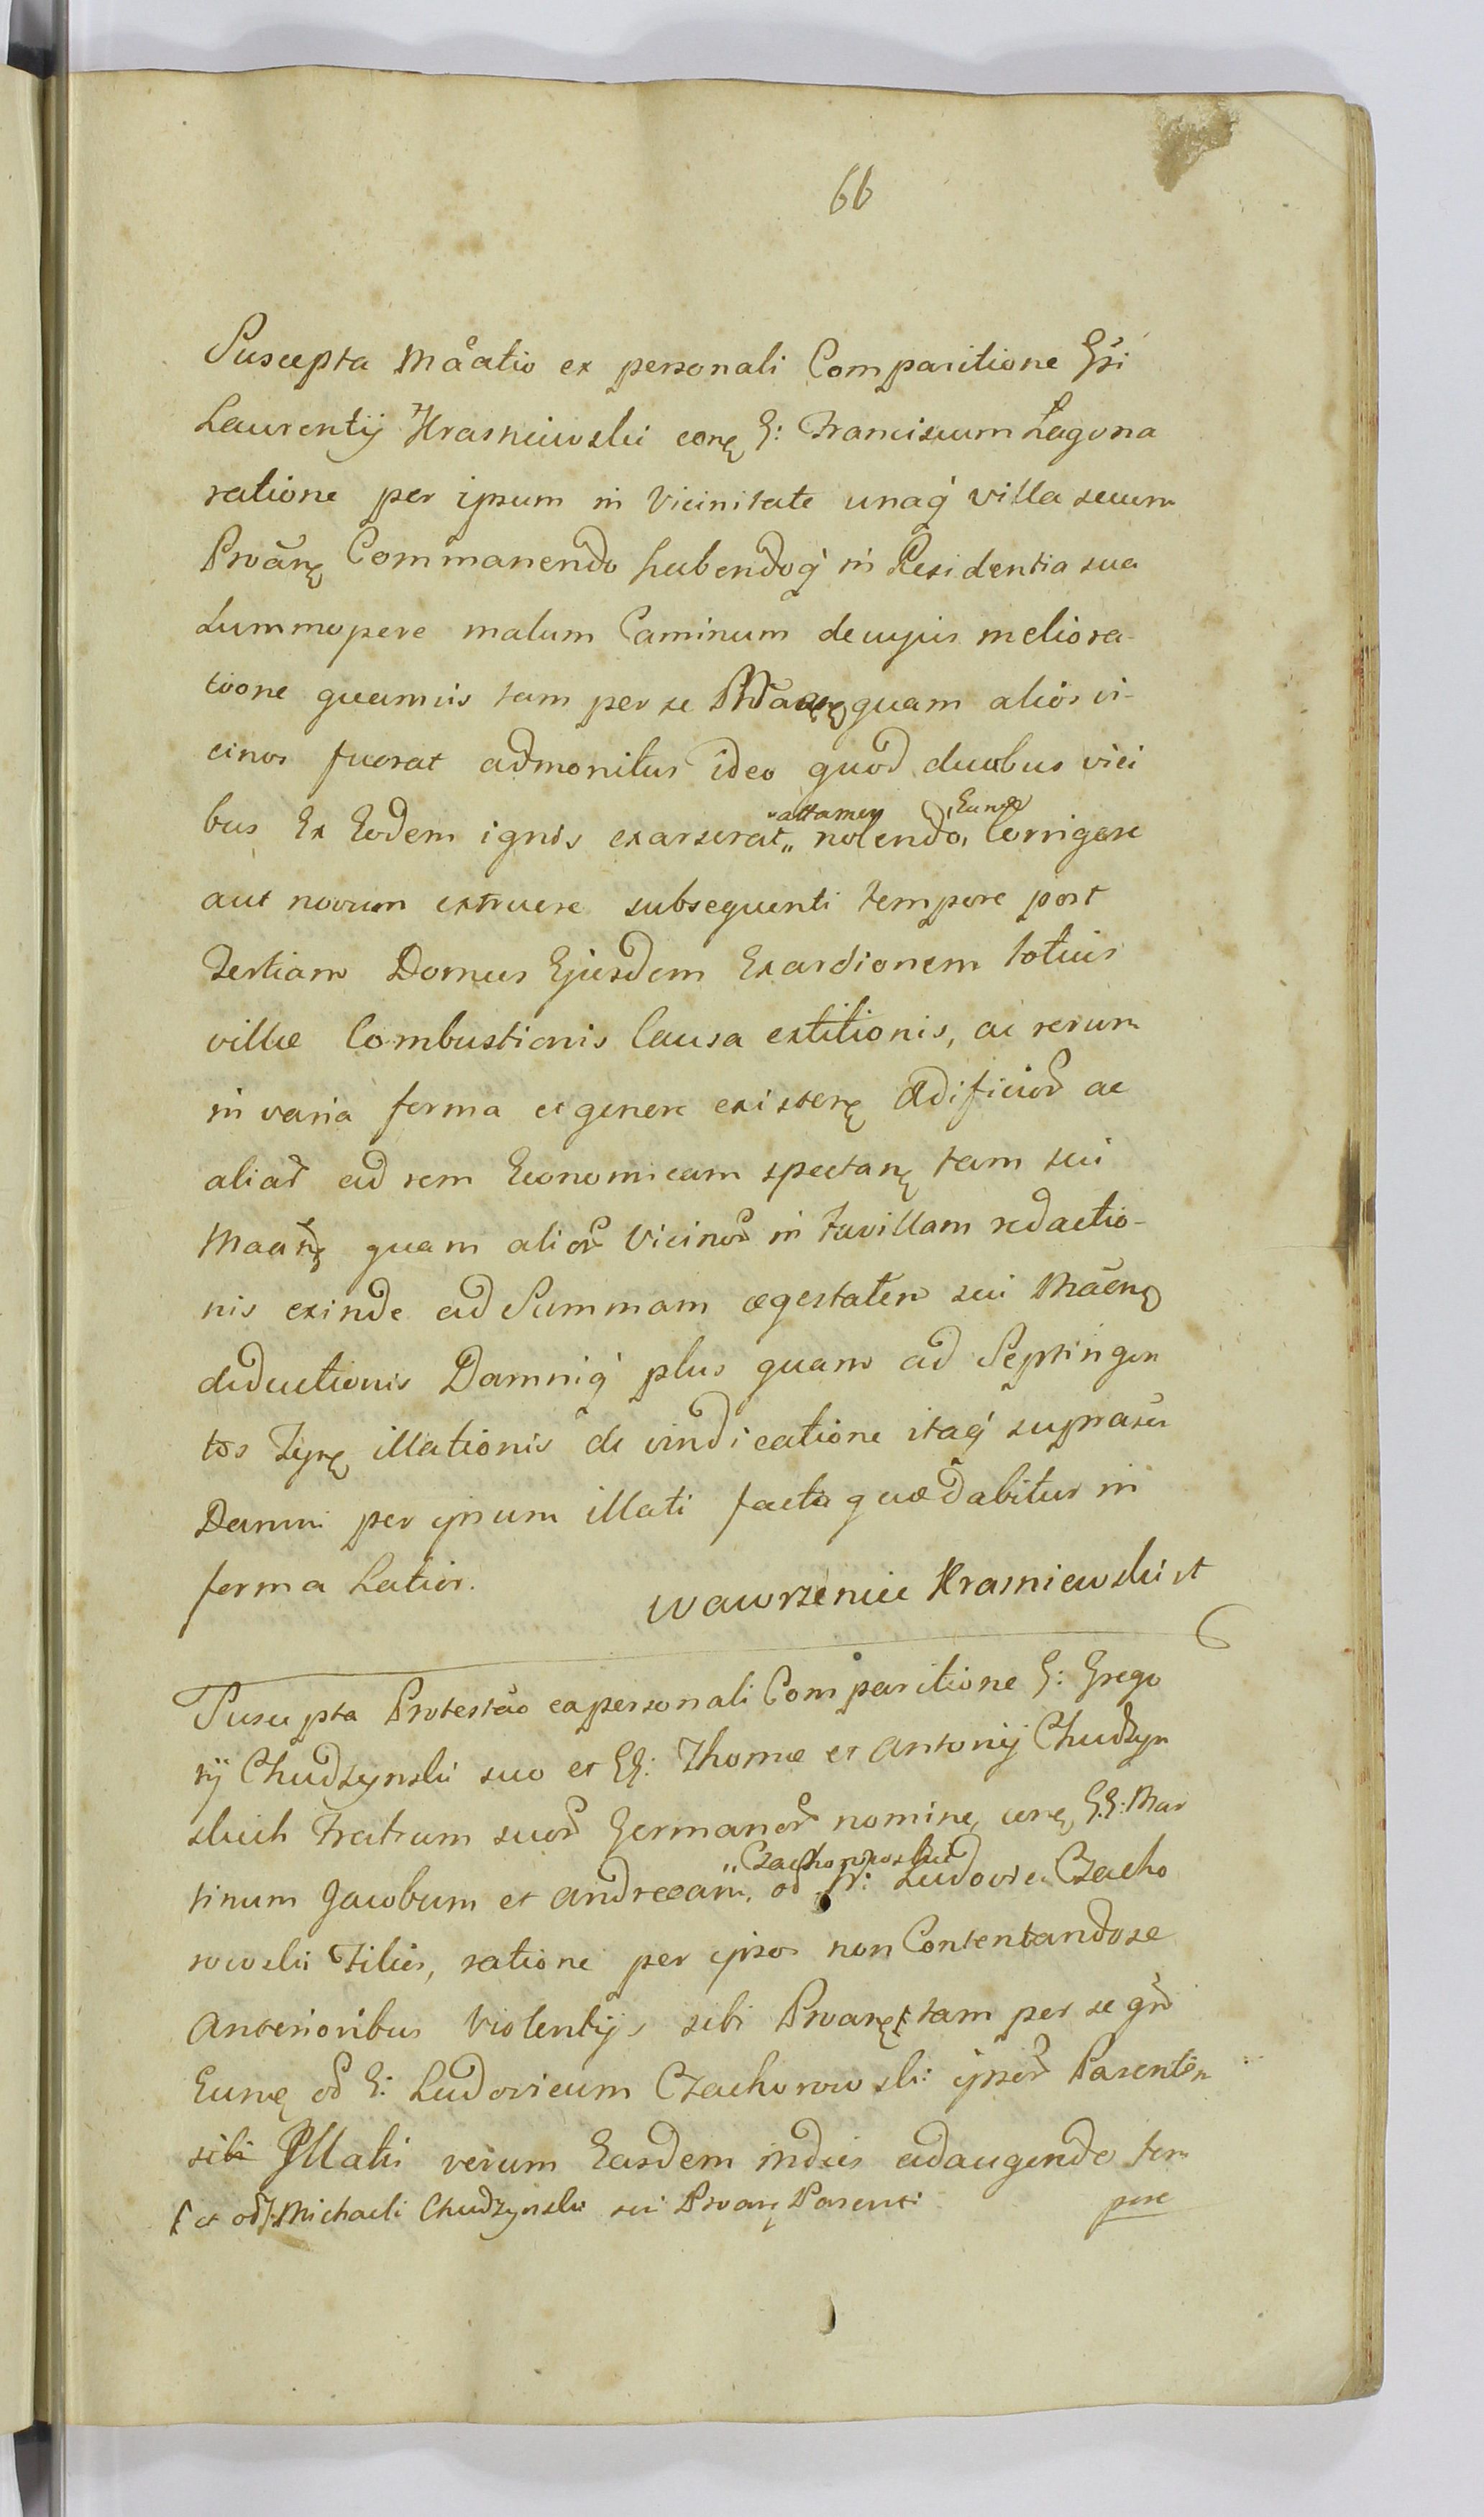 66
Suscepta Maãtio ex personali Comparitione Gsi
Laurentij Krasniewski conę G: Franciscum Łagona
ratione per ipsum in Vicinitate unaq́ villa secum
Proãnę Commanendo habendoq́ in Residentia sua
Summopere malum Caminum de cujus meliora-
tione quamvis tam per se quam alios vi-
cinos fuerat admonitus ideo quod duobus vici
bus Ex Eodem ignis exarserat „attamen nolendo, Eunde Corrigere
aut novum extruere subsequenti tempore post
Tertiam Domus Ejusdem Exardionem totius
villæ Combustionis Causa extitionis, ac rerum
in varia forma et genere existenę Ædificior ac
aliar ad rem Economicam spectanę tam sui
Maãnę quam alior Vicinor in favillam redactio-
nis exinde ad Summam ægestatem sui Maãnę
deductionis Damniq́ plus quam ad Septingen
tos Tynę illationis de vindicatione itaq́ suprascr
Damni per ipsum illati facta quæ dabitur in
forma Latior.
Wawrzeniec Krasniewski
Suscepta Protestão ex personali Comparitione G: Grego
rij Chudzynski suo et GG: Thomæ et Antonij Chudzyn
skich Fratrum suor Germanor nomine, conę, G.G: Mar
tinum Jacobum et Andreeam, „Czachorowskich od Ludovici Czacho
rowski Filios, ratione per ipsos non Contentandose
Anterioribus Violentijs sibi Proanę tam per se qm
Eunę od G: Ludovicum Czachorowski ipsor Parentem
sibi Illatis verum Easdem indies adaugendo tem
et od Michaeli Chudzynski sui Proanę Parenti
pore